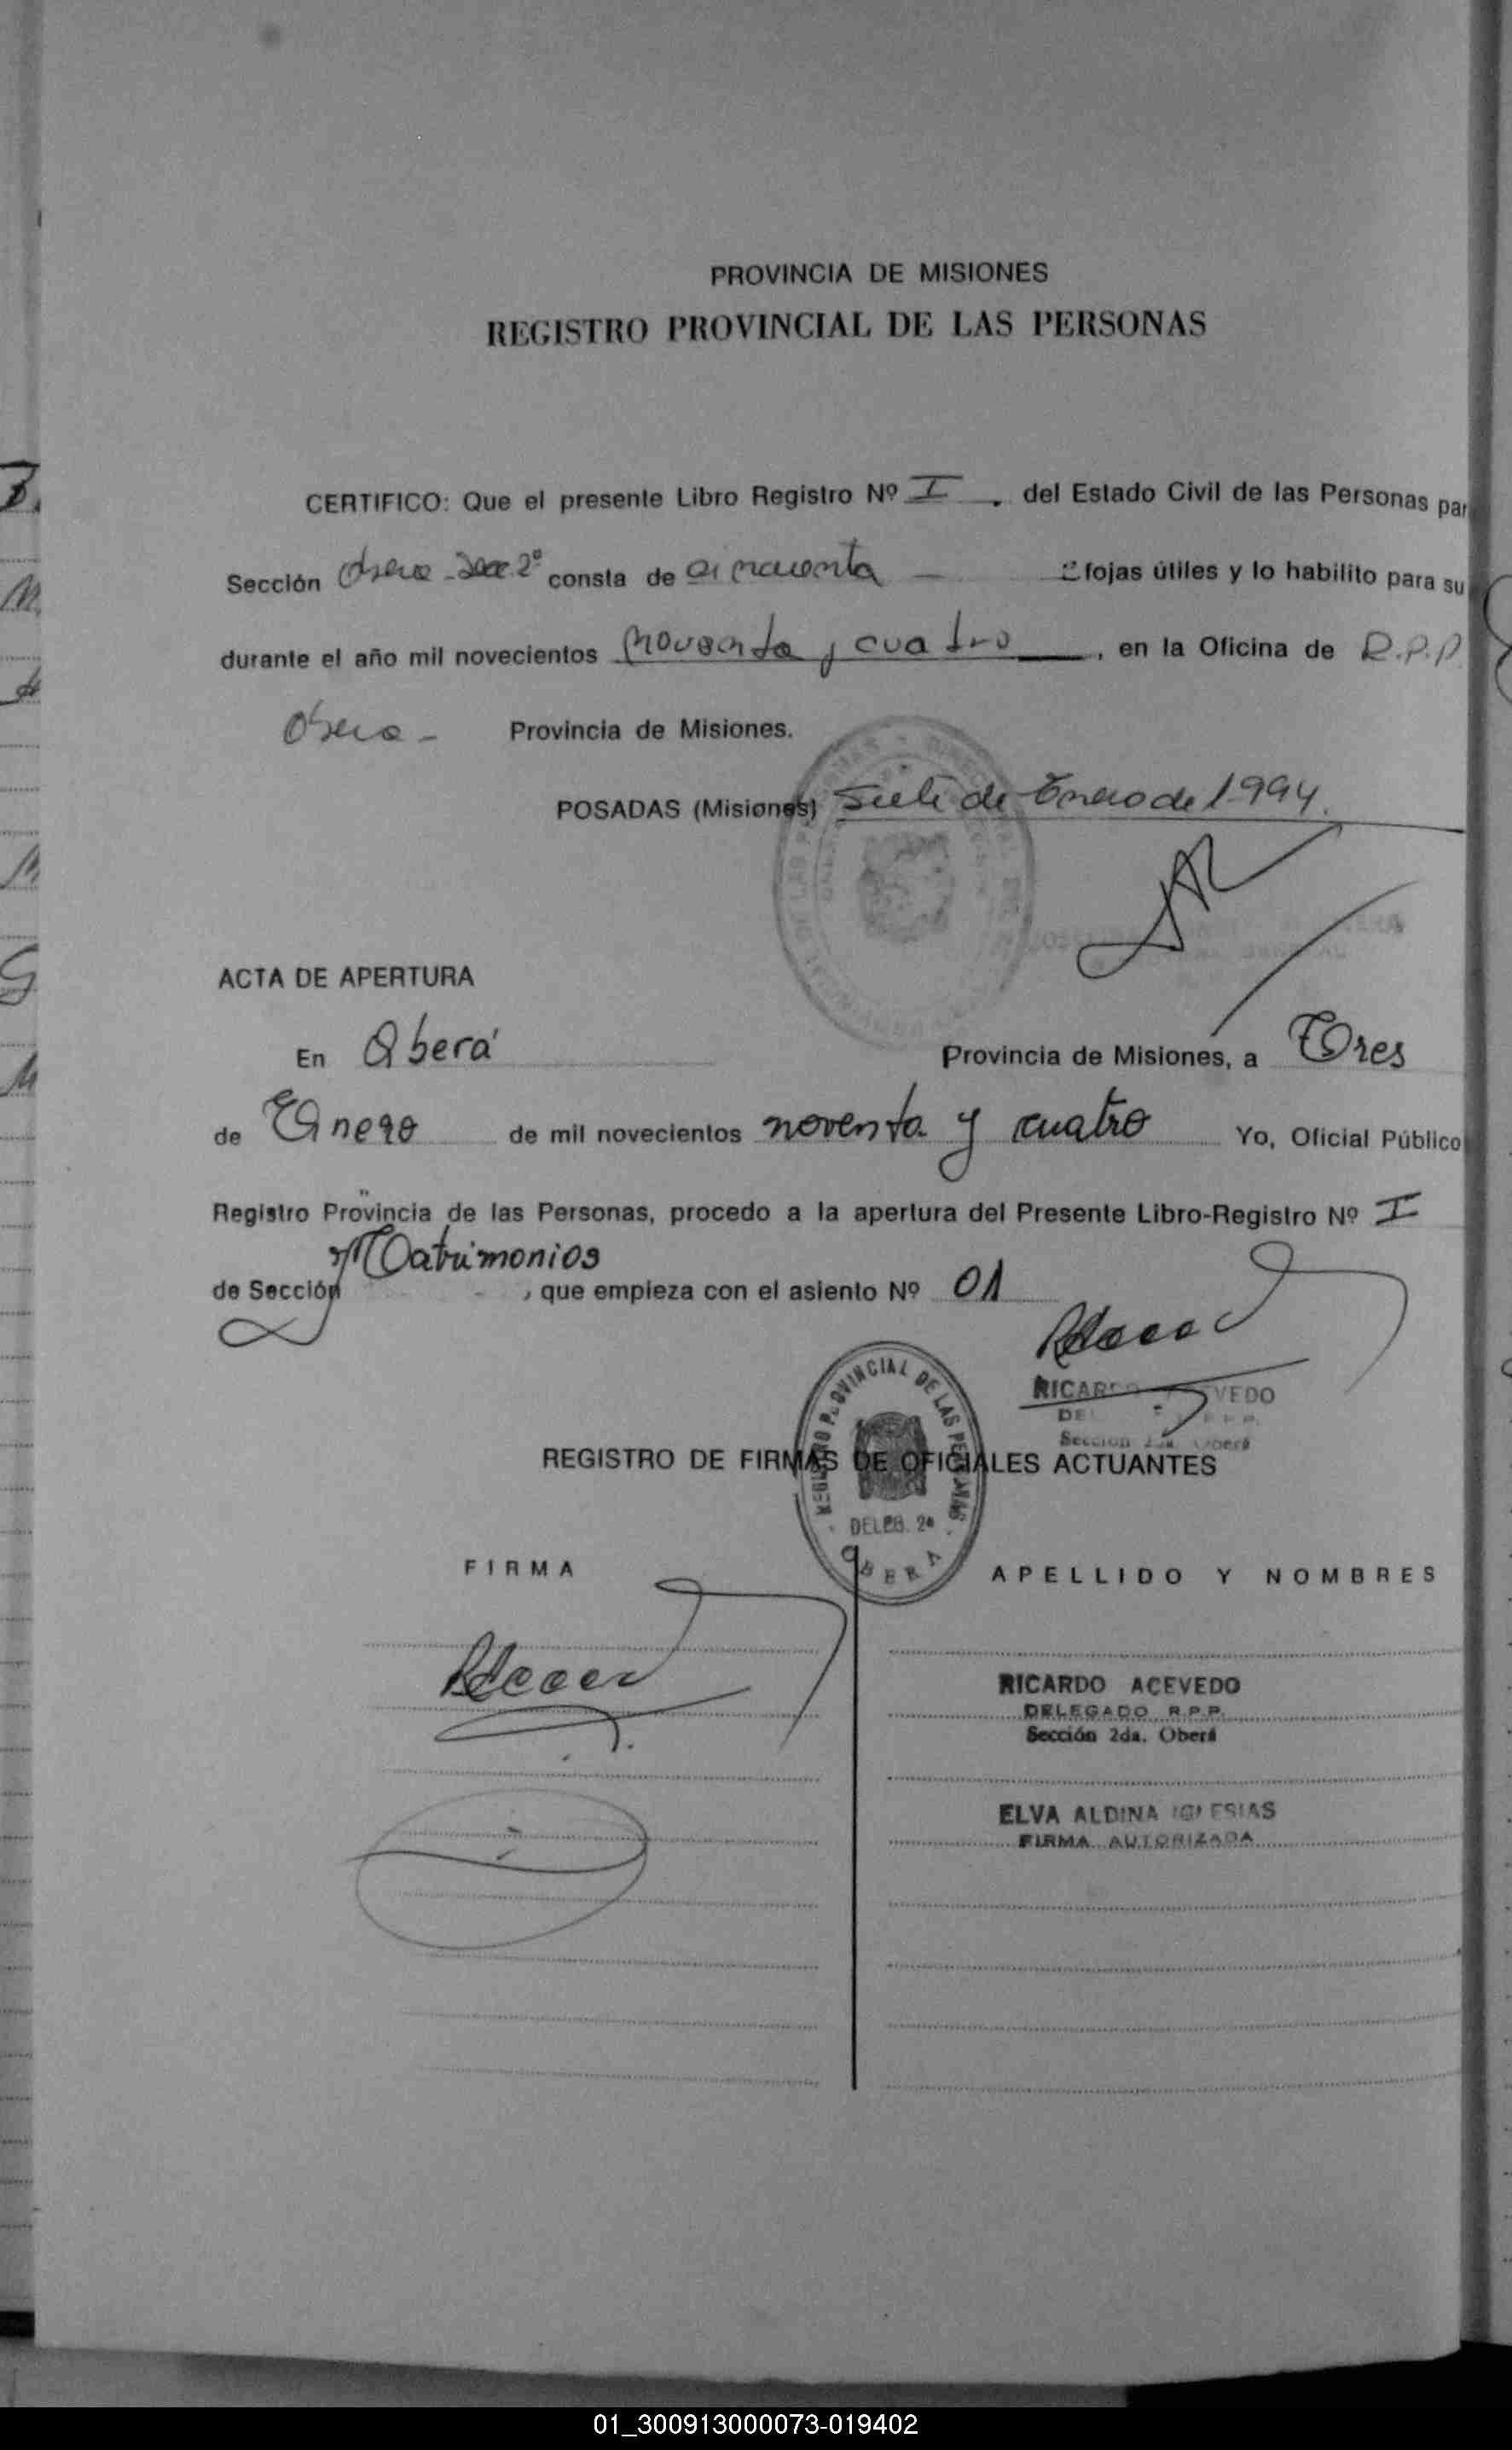 PROVINCIA DE MISIONES
REGISTRO PROVINCIAL DE LAS PERSONAS
CERTIFICO: Que el presente Libro Registro Nº I . del Estado Civil de las Personas par
Sección Obera - Secc. 2º consta de cincuenta — fojas útiles y lo habilito para su
durante el año mil novecientos noventa y cuatro, en la Oficina de R.P.P
Obera - Provincia de Misiones.
POSADAS (Misiones) Siete de Enero de 1994.
ACTA DE APERTURA
En Oberá Provincia de Misiones, a Tres
de Enero de mil novecientos noventa y cuatro Yo, Oficial Público
Registro Provincia de las Personas, procedo a la apertura del Presente Libro-Registro Nº I
Matrimonios
de Sección , que empieza con el asiento Nº 01
RICARDO ACEVEDO
Sección 2da. Oberá
REGISTRO PROVINCIAL DE LAS PERSONAS
DELEG. 2ª
OBERA
REGISTRO DE FIRMAS DE OFICIALES ACTUANTES
FIRMA APELLIDO Y NOMBRES
RICARDO ACEVEDO
DELEGADO R.P.P.
Sección 2da. Oberá
ELVA ALDINA IGLESIAS
FIRMA AUTORIZADA
01_300913000073-019402